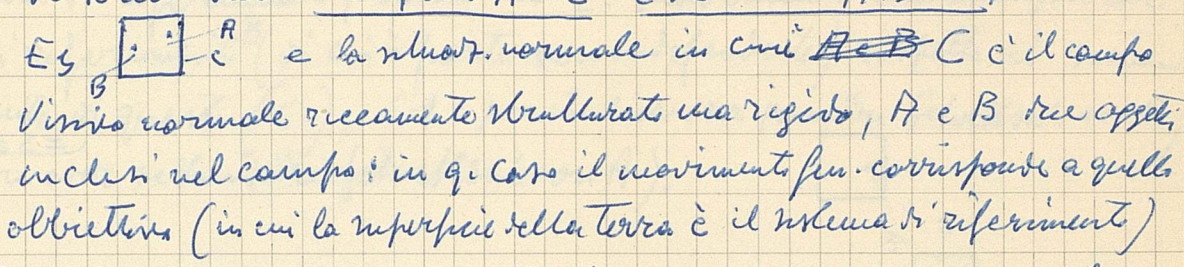 Es A B C è la situaz. normale in cui A e B C è il campo
visivo normale riccamente strutturato ma rigido, A e B due oggetti
inclusi nel campo: in q. caso il movimento fen. corrisponde a quello
obbiettivo (in cui la superficie della terra è il sistema di riferimento)